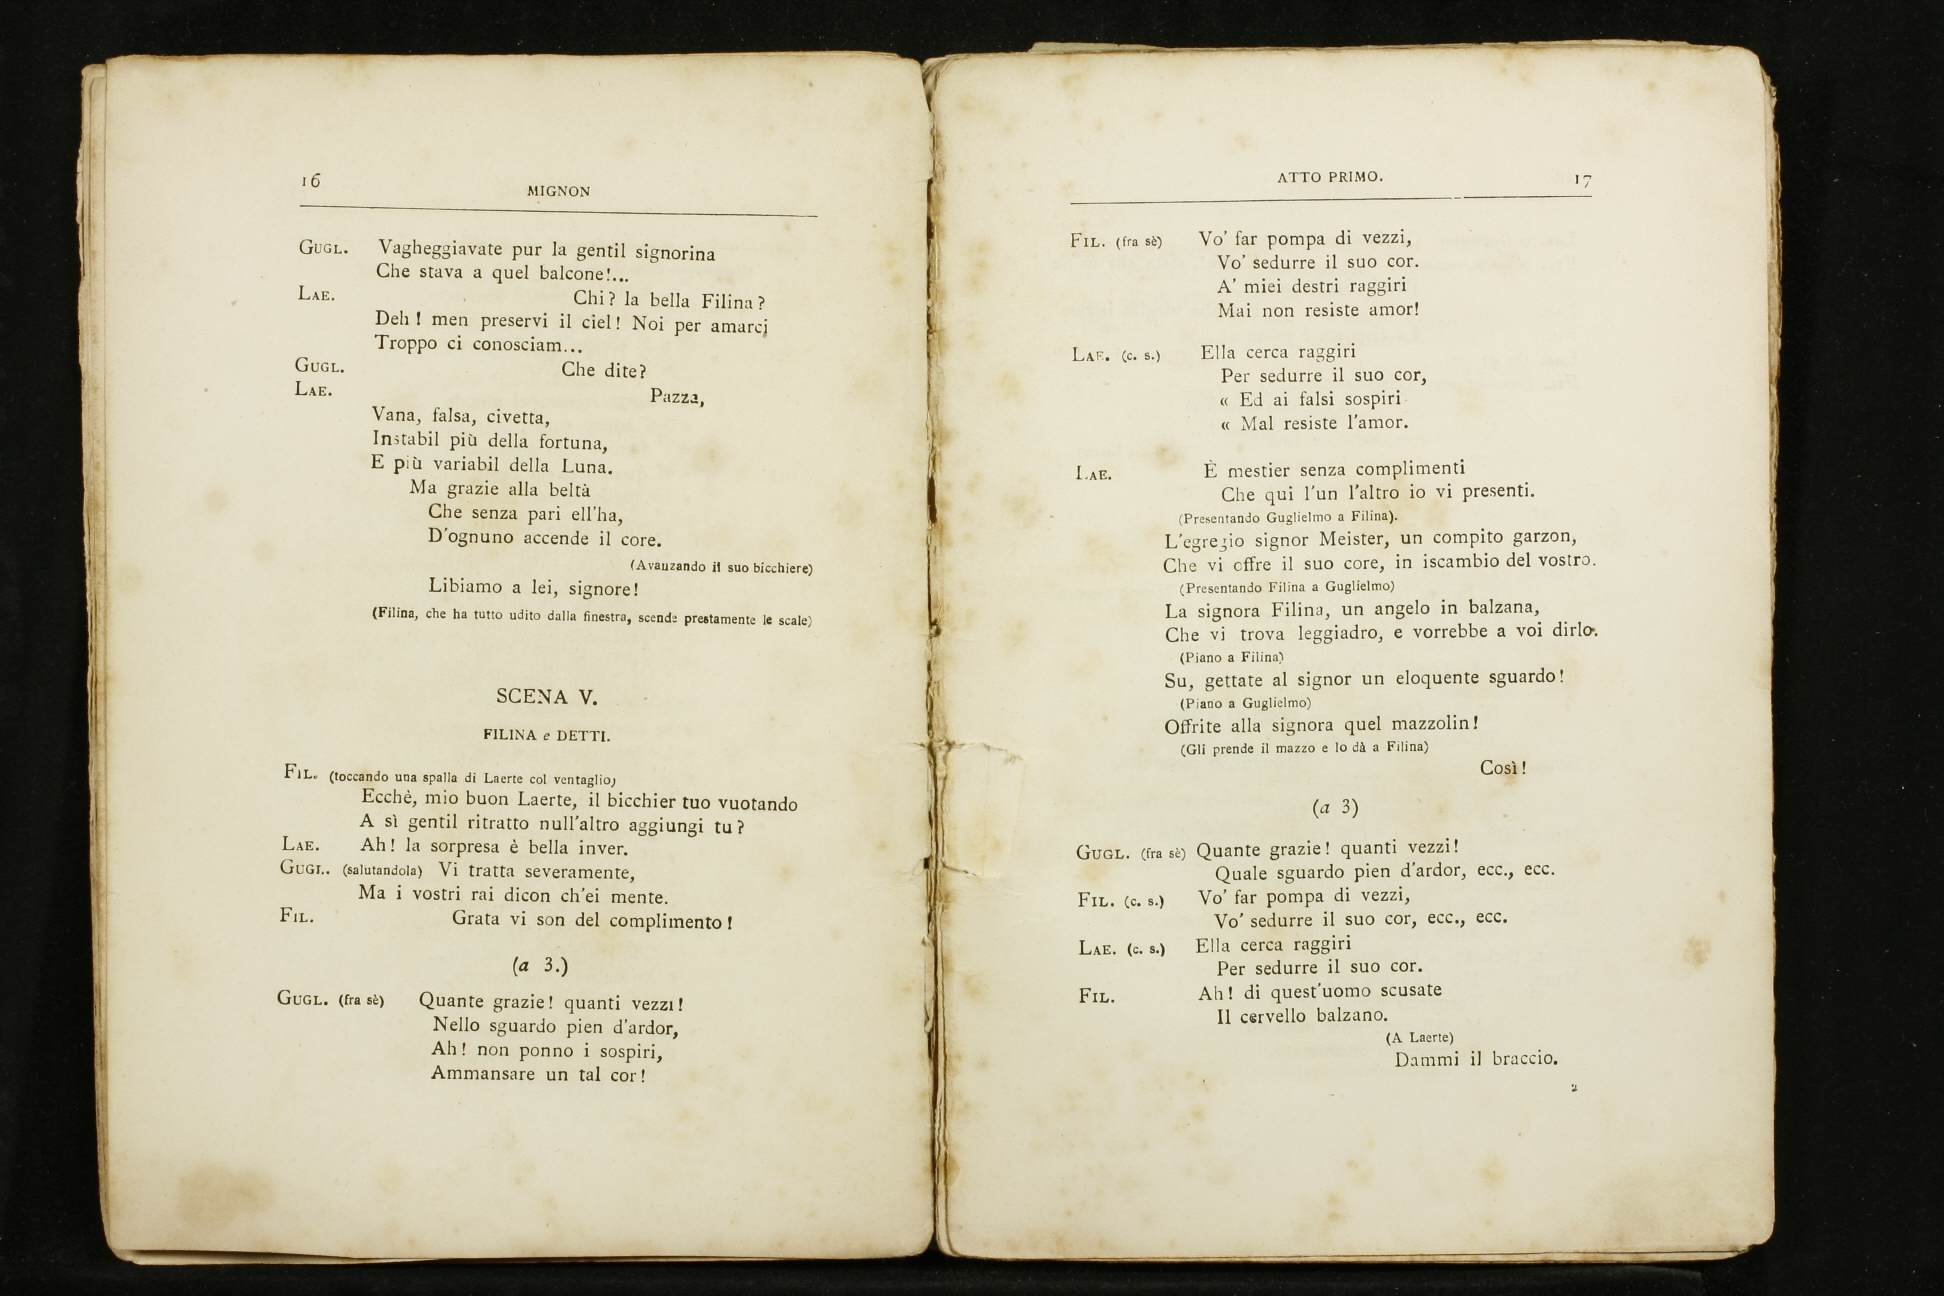 16
MIGNON
GUGL. Vagheggiavate pur la gentil signorina
Che stava a quel balcone!...
LAE. Chi? la bella Filina?
Deh! men preservi il ciel! Noi per amarci
Troppo ci conosciam...
GUGL. Che dite?
LAE. Pazza,
Vana, falsa, civetta,
Instabil più della fortuna,
E più variabil della Luna.
Ma grazie alla beltà
Che senza pari ell'ha,
D'ognuno accende il core.
(Avanzando il suo bicchiere)
Libiamo a lei, signore!
(Filina, che ha tutto udito dalla finestra, scende prestamente le scale)
SCENA V.
FILINA e DETTI.
FIL. (toccando una spalla di Laerte col ventaglio)
Ecchè, mio buon Laerte, il bicchier tuo vuotando
A sì gentil ritratto null'altro aggiungi tu?
LAE. Ah! la sorpresa è bella inver.
GUGL. (salutandola) Vi tratta severamente,
Ma i vostri rai dicon ch'ei mente.
FIL. Grata vi son del complimento!
(a 3.)
GUGL. (fra sè) Quante grazie! quanti vezzi!
Nello sguardo pien d'ardor,
Ah! non ponno i sospiri,
Ammansare un tal cor!
ATTO PRIMO.
17
FIL. (fra sè) Vo' far pompa di vezzi,
Vo' sedurre il suo cor.
A' miei destri raggiri
Mai non resiste amor!
LAE. (c. s.) Ella cerca raggiri
Per sedurre il suo cor,
« Ed ai falsi sospiri
« Mal resiste l'amor.
LAE. È mestier senza complimenti
Che qui l'un l'altro io vi presenti.
(Presentando Guglielmo a Filina).
L'egregio signor Meister, un compito garzon,
Che vi offre il suo core, in iscambio del vostro.
(Presentando Filina a Guglielmo)
La signora Filina, un angelo in balzana,
Che vi trova leggiadro, e vorrebbe a voi dirlo.
(Piano a Filina)
Su, gettate al signor un eloquente sguardo!
(Piano a Guglielmo)
Offrite alla signora quel mazzolin!
(Gli prende il mazzo e lo dà a Filina)
Così!
(a 3)
GUGL. (fra sè) Quante grazie! quanti vezzi!
Quale sguardo pien d'ardor, ecc., ecc.
FIL. (c. s.) Vo' far pompa di vezzi,
Vo' sedurre il suo cor, ecc., ecc.
LAE. (c. s.) Ella cerca raggiri
Per sedurre il suo cor.
FIL. Ah! di quest'uomo scusate
Il cervello balzano.
(A Laerte)
Dammi il braccio.
2